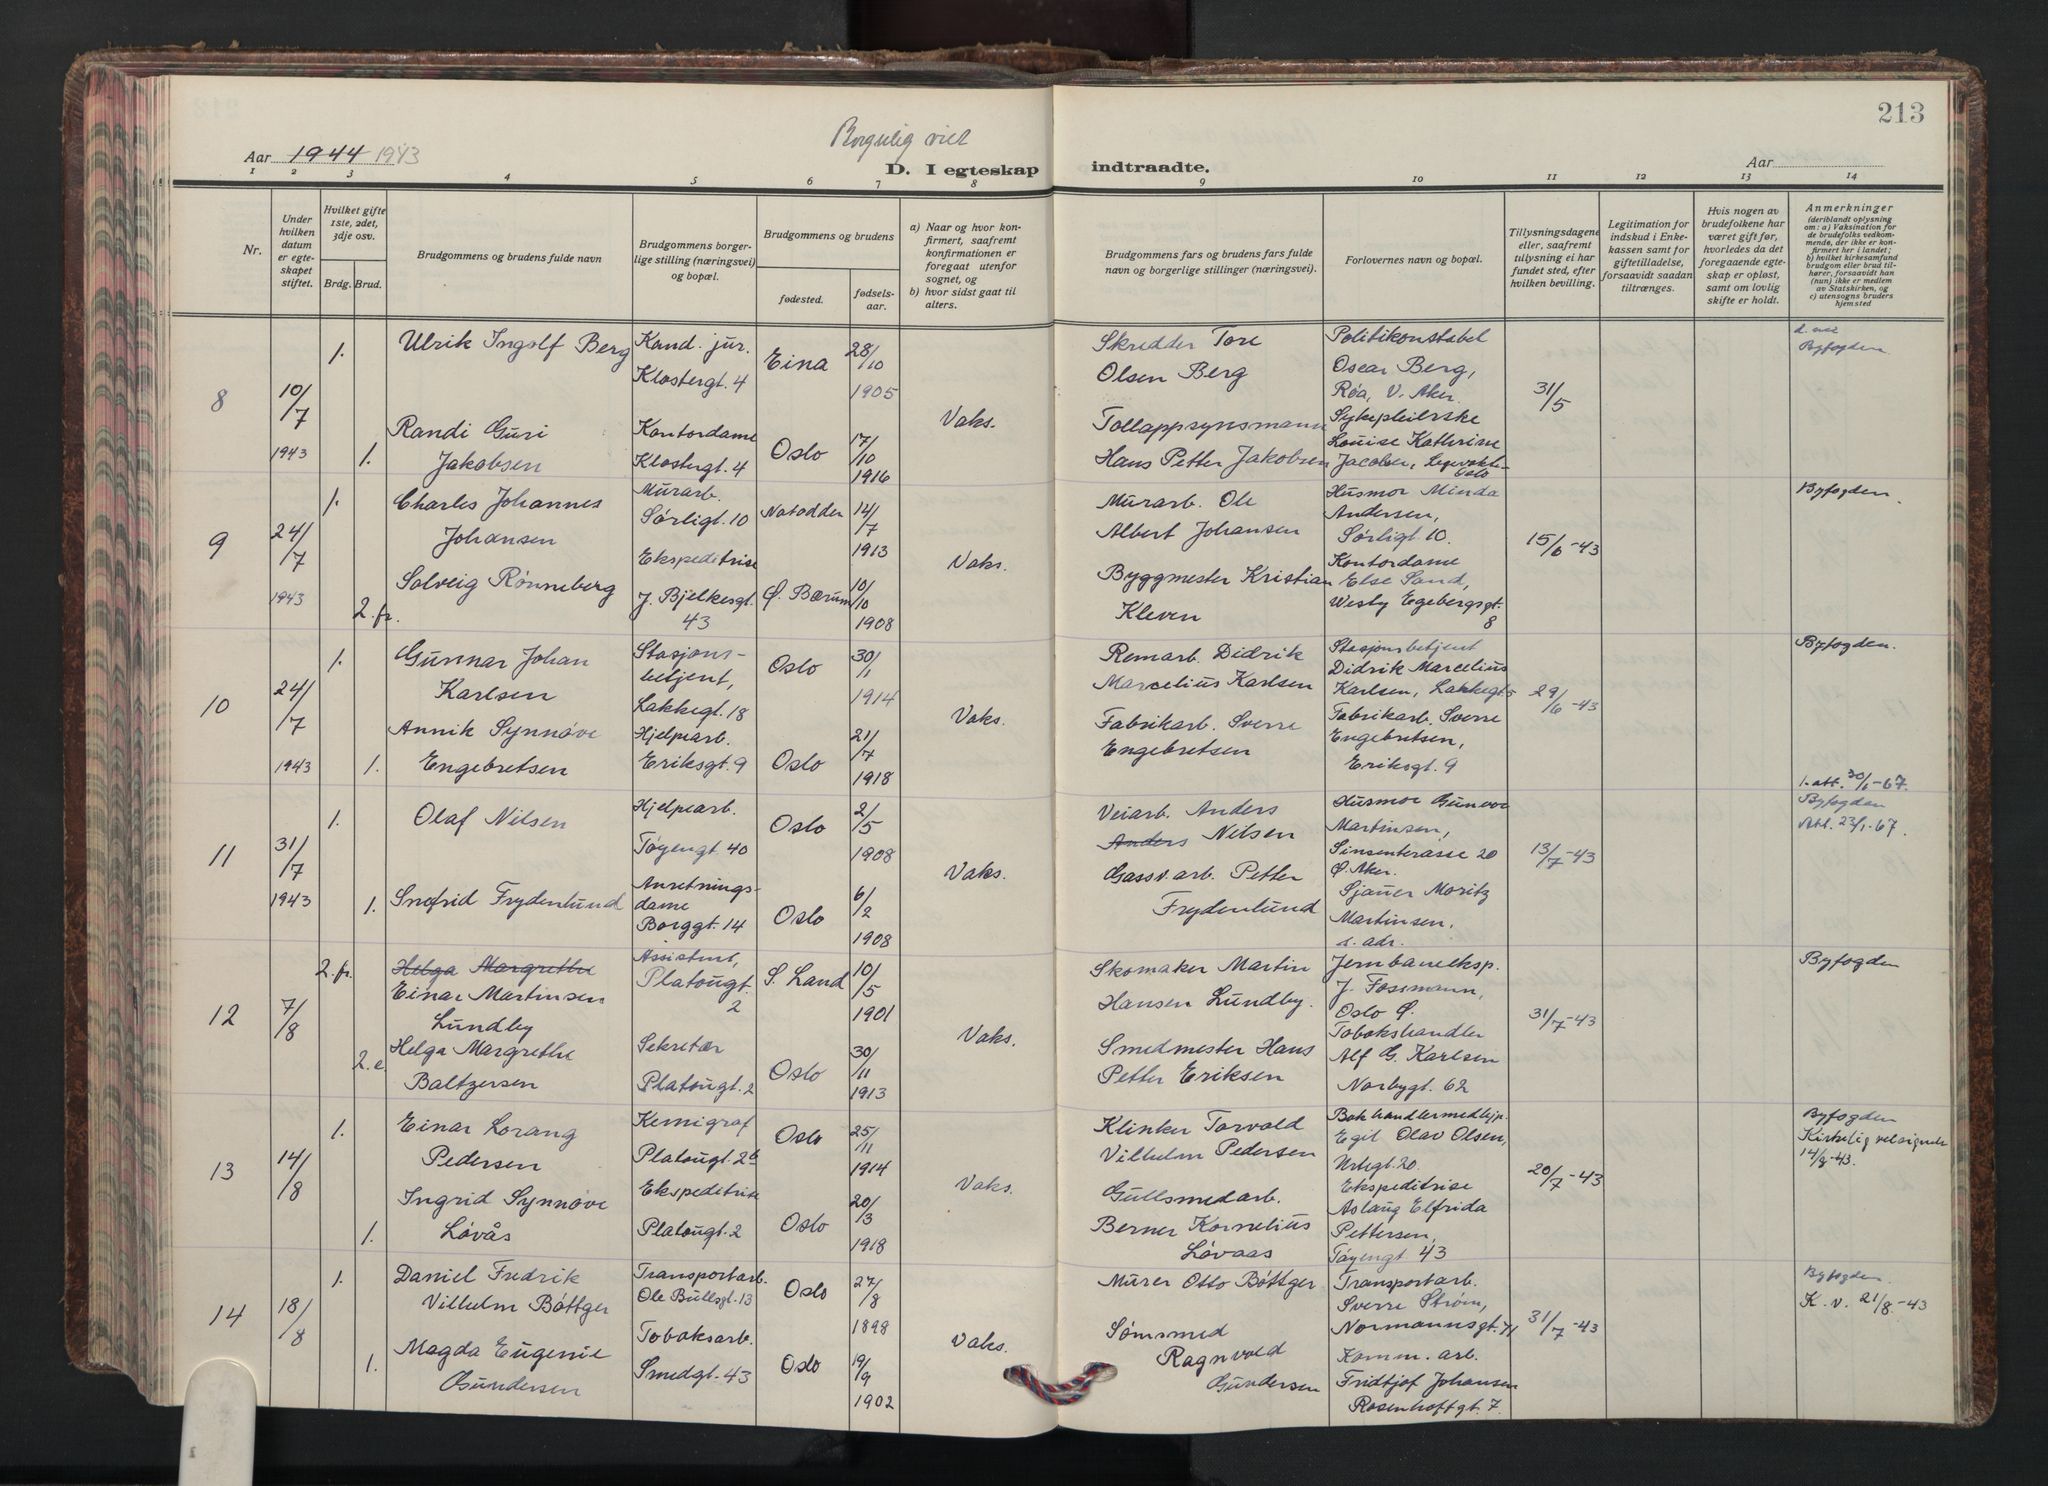 213
Borgerlig viet
Aar 1944 1943
D. I egteskap indtraadte.
Aar
1 2 3 4 5 6 7 8 9 10 11 12 13 14
Nr.
Under hvilken datum er egteskapet stiftet.
Hvilket gifte 1ste, 2det, 3dje osv.
Brdg. Brud.
Brudgommens og brudens fulde navn
Brudgommens borgerlige stilling (næringsvei) og bopæl.
Brudgommens og brudens
fødested. fødselsaar.
a) Naar og hvor konfirmert, saafremt konfirmationen er foregaat utenfor sognet, og
b) hvor sidst gaat til alters.
Brudgommens fars og brudens fars fulde navn og borgerlige stillinger (næringsvei).
Forlovernes navn og bopæl.
Tillysningsdagene eller, saafremt tillysning ei har fundet sted, efter hvilken bevilling.
Legitimation for indskud i Enkekassen samt for giftetilladelse, forsaavidt saadan tiltrænges.
Hvis nogen av brudefolkene har været gift før, hvorledes da det foregaaende egteskap er opløst, samt om lovlig skifte er holdt.
Anmerkninger
(deriblandt oplysning om: a) Vaksination for de brudefolks vedkommende, der ikke er konfirmert her i landet; b) hvilket kirkesamfund brudgom eller brud tilhører, forsaavidt han (hun) ikke er medlem av Statskirken, og c) utensogns bruders hjemsted
8
10/7
1943
1.
Ulrik Ingolf Berg
Kand. jur.
Klostergt. 4
Eina
28/10
1905
Vaks.
Skredder Tore
Olsen Berg
Politikonstabel
Oscar Berg,
Røa, V. Aker.
31/5
Byfogden
1.
Randi Guri
Jakobsen
Kontordame
Klostergt. 4
Oslo
17/10
1916
Tollappsynsmann
Hans Petter Jakobsen
Sykepleierske
Louise Kathrine
Jacobsen, Legevakten
Oslo
9
24/7
1943
1.
Charles Johannes
Johansen
Murarb.
Sørligt. 10
Notodden
14/7
1913
Vaks.
Murarb. Ole
Albert Johansen
Husmor Minda
Andersen,
Sørligt 10.
15/6-43
Byfogden.
2. fr.
Solveig Rønneberg
Ekspeditrise
J. Bjelkesgt.
43
Ø. Bærum
10/10
1908
Byggmester Kristian
Kleven
Kontordame
Else Sand,
Westy Egebergsgt.
8
10
24/7
1943
1.
Gunnar Johan
Karlsen
Stasjons-
betjent,
Lakkegt. 18
Oslo
30/1
1914
Vaks.
Remarb. Didrik
Marcelius Karlsen
Stasjonsbetjent
Didrik Marcelius
Karlsen, Lakkegt. 5
29/6-43
Byfogden.
1.
Annik Synnøve
Engebretsen
Hjelpearb.
Eriksgt. 9
Oslo
21/7
1918
Fabrikarb. Sverre
Engebretsen
Fabrikarb. Sverre
Engebretsen,
Eriksgt. 9
11
31/7
1943
1.
Olaf Nilsen
Hjelpearb.
Tøyengt. 40
Oslo
2/5
1908
Vaks.
Veiarb. Anders
Anders Nilsen
Husmor Gunvor
Martinsen,
Sinsenterasse 20
Ø. Aker.
13/7-43
1. att. 30/1-67.
Byfogden
Att. 23/1-67.
1.
Snefrid Frydenlund
Anretnings-
dame
Borggt. 14
Oslo
6/2
1908
Gassv.arb. Petter
Frydenlund
Sjauer Moritz
Martinsen,
s. adr.
12
7/8
2. fr.
Helga Margrethe
Einar Martinsen
Lundby
Assistent,
Platougt.
2
S. Land
10/5
1901
Vaks.
Skomaker Martin
Hansen Lundby.
Jernbaneeksp.
J. Fossmann,
Oslo Ø.
31/7-43
Byfogden
2. e
Helga Margrethe
Baltzersen
Sekretær
Platougt. 2
Oslo
30/11
1913
Smedmester Hans
Petter Eriksen
Tobakshandler
Alf G. Karlsen
Norbygt. 62
13
14/8
1.
Einar Lorang
Pedersen
Kemigraf
Platougt. 2b
Oslo
25/11
1914
Vaks.
Klinker Torvald
Vilhelm Pedersen
Bokhandlermedhjp.
Egil Olav Olsen,
Urtegt. 20.
20/7-43
Byfogden
Kirkelig velsignede
14/8-43.
1.
Ingrid Synnøve
Løvås
Ekspeditrise
Platougt. 2
Oslo
20/3
1918
Gullsmedarb.
Berner Kornelius
Løvaas
Ekspeditrise
Aslaug Elfrida
Pettersen,
Tøyengt 43
14
18/8
1.
Daniel Fredrik
Vilhelm Bøttger
Transportarb.
Ole Bullsgt. 13
Oslo
27/8
1898
Vaks.
Murer Otto Bøttger
Transportarb.
Sverre Strøm,
Normannsgt. 71
31/7-43
Byfogden
K. v. 21/8.-43
1.
Magda Eugenie
Gundersen
Tobaksarb.
Smedgt. 43
Oslo
19/9
1902
Sømsmed
Ragnvald
Gundersen
Komm. arb.
Fridtjof Johansen
Rosenhoffgt. 7.